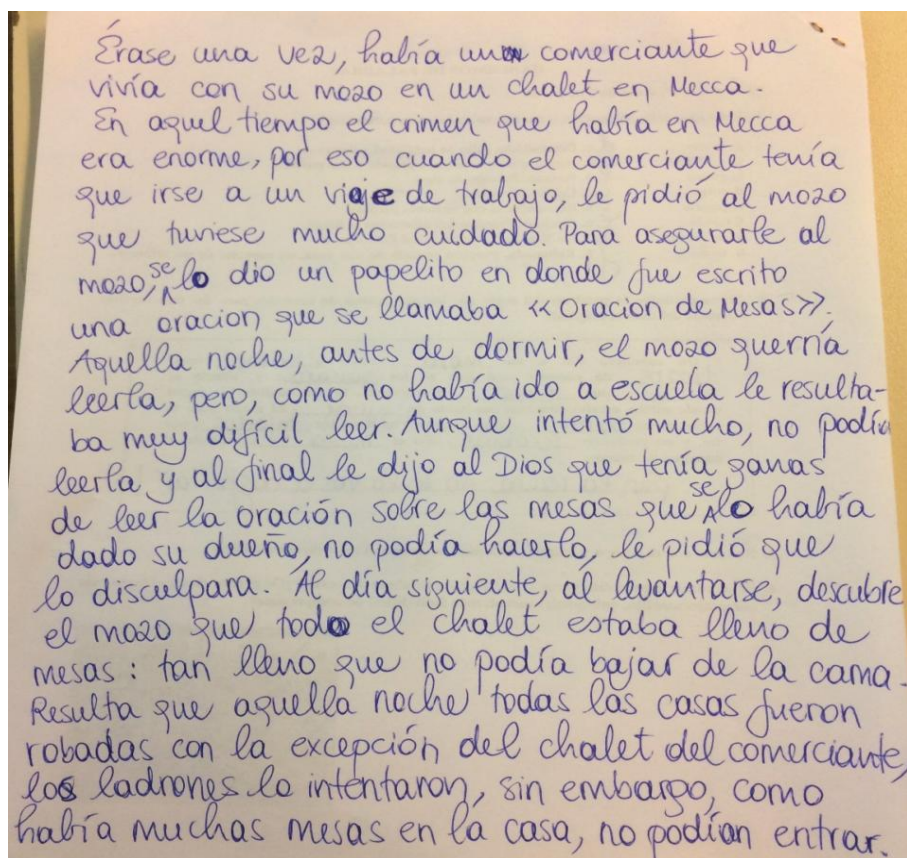 Érase una vez, había un comerciante que
vivía con su mozo en un chalet en Mecca.
En aquel tiempo el crimen que había en Mecca
era enorme, por eso cuando el comerciante tenía
que irse a un viaje de trabajo, le pidió al mozo
que tuviese mucho cuidado. Para asegurarle al
mozo, se lo dio un papelito en donde fue escrito
una oracion que se llamaba «Oracion de Mesas».
Aquella noche, antes de dormir, el mozo querría
leerla, pero, como no había ido a escuela le resulta-
ba muy difícil leer. Aunque intentó mucho, no podía
leerla y al final le dijo al Dios que tenía ganas
de leer la oración sobre las mesas que se lo había
dado su dueño, no podía hacerlo, le pidió que
lo disculpara. Al día siguiente, al levantarse, descubre
el mozo que todo el chalet estaba lleno de
mesas: tan lleno que no podía bajar de la cama.
Resulta que aquella noche todas las casas fueron
robadas con la excepción del chalet del comerciante,
los ladrones lo intentaron, sin embargo, como
había muchas mesas en la casa, no podían entrar.